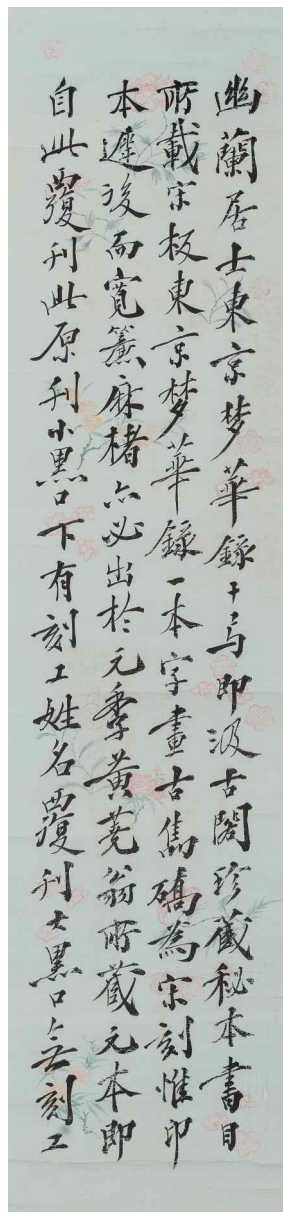 幽蘭居士東京梦華録十弓即汲古閣珍藏秘本書目
所載宋板東京梦華録一本字畫古雋礭為宋刻惟印
本遲後而寬簾麻楮亦必出於元季黄蕘翁所藏元本即
自此覆刊此原刊小黑口下有刻工姓名覆刊大黑口無刻工